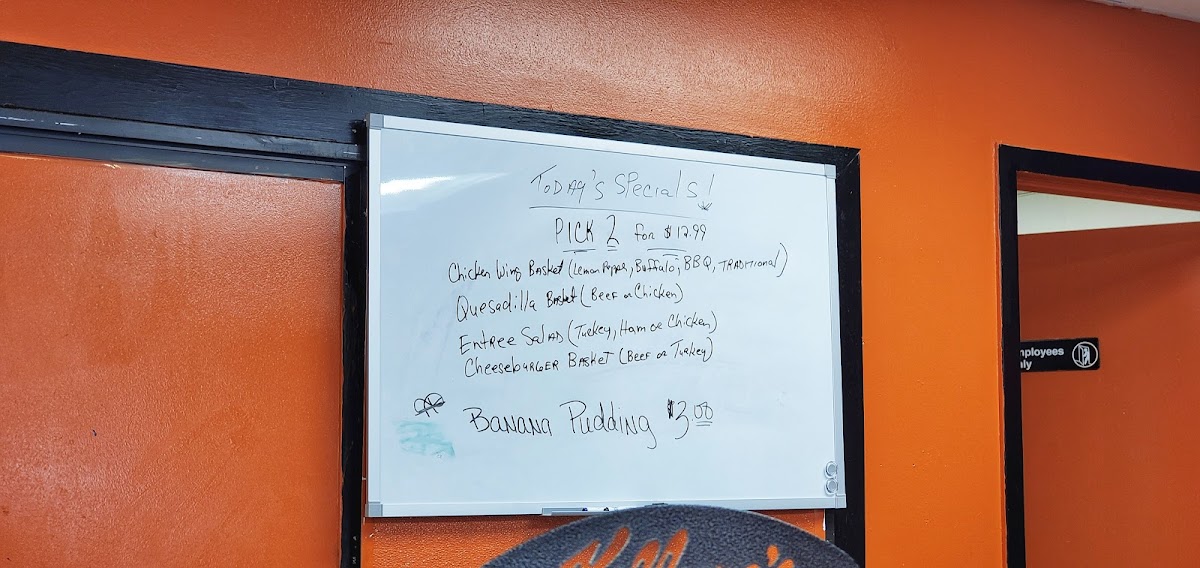 TODAY'S SPecialS!
PICK 2 for $12.99
Chicken Wing Basket (Lemon Pepper, Buffalo, BBQ, TRADITIONAL)
Quesadilla Basket (Beef or Chicken)
ENTREE SALAD (Turkey, Ham or Chicken)
CheeseburGER BASKET (BEEF or Turkey)
BANANA PuddiNG $3.00
mployees
nly